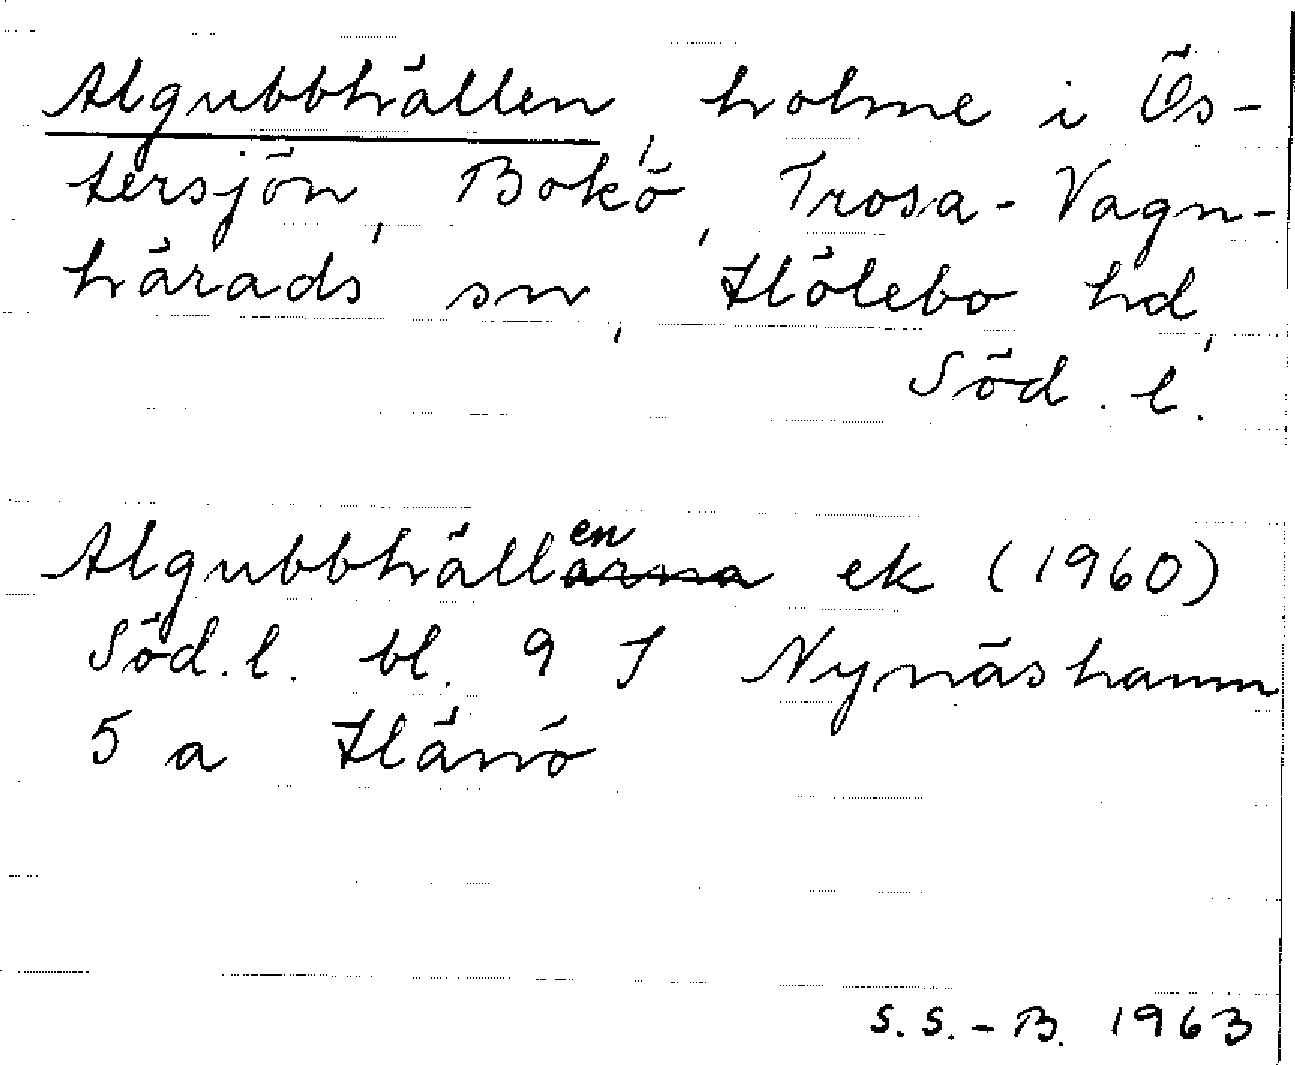 Algubbhällen, holme i Ös-
tersjön, Bokö, Trosa-Vagn-
härads sn, Hölebo hd,
Söd. l.
Algubbhällarna en ek (1960)
Söd. l. bl. 9 I Nynäshamn
5 a Hånö
S. S.-B. 1963